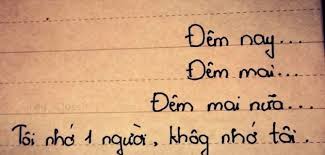 Đêm nay...
Đêm mai...
Đêm mai nữa...
Tôi nhớ 1 người, khôg nhớ tôi.